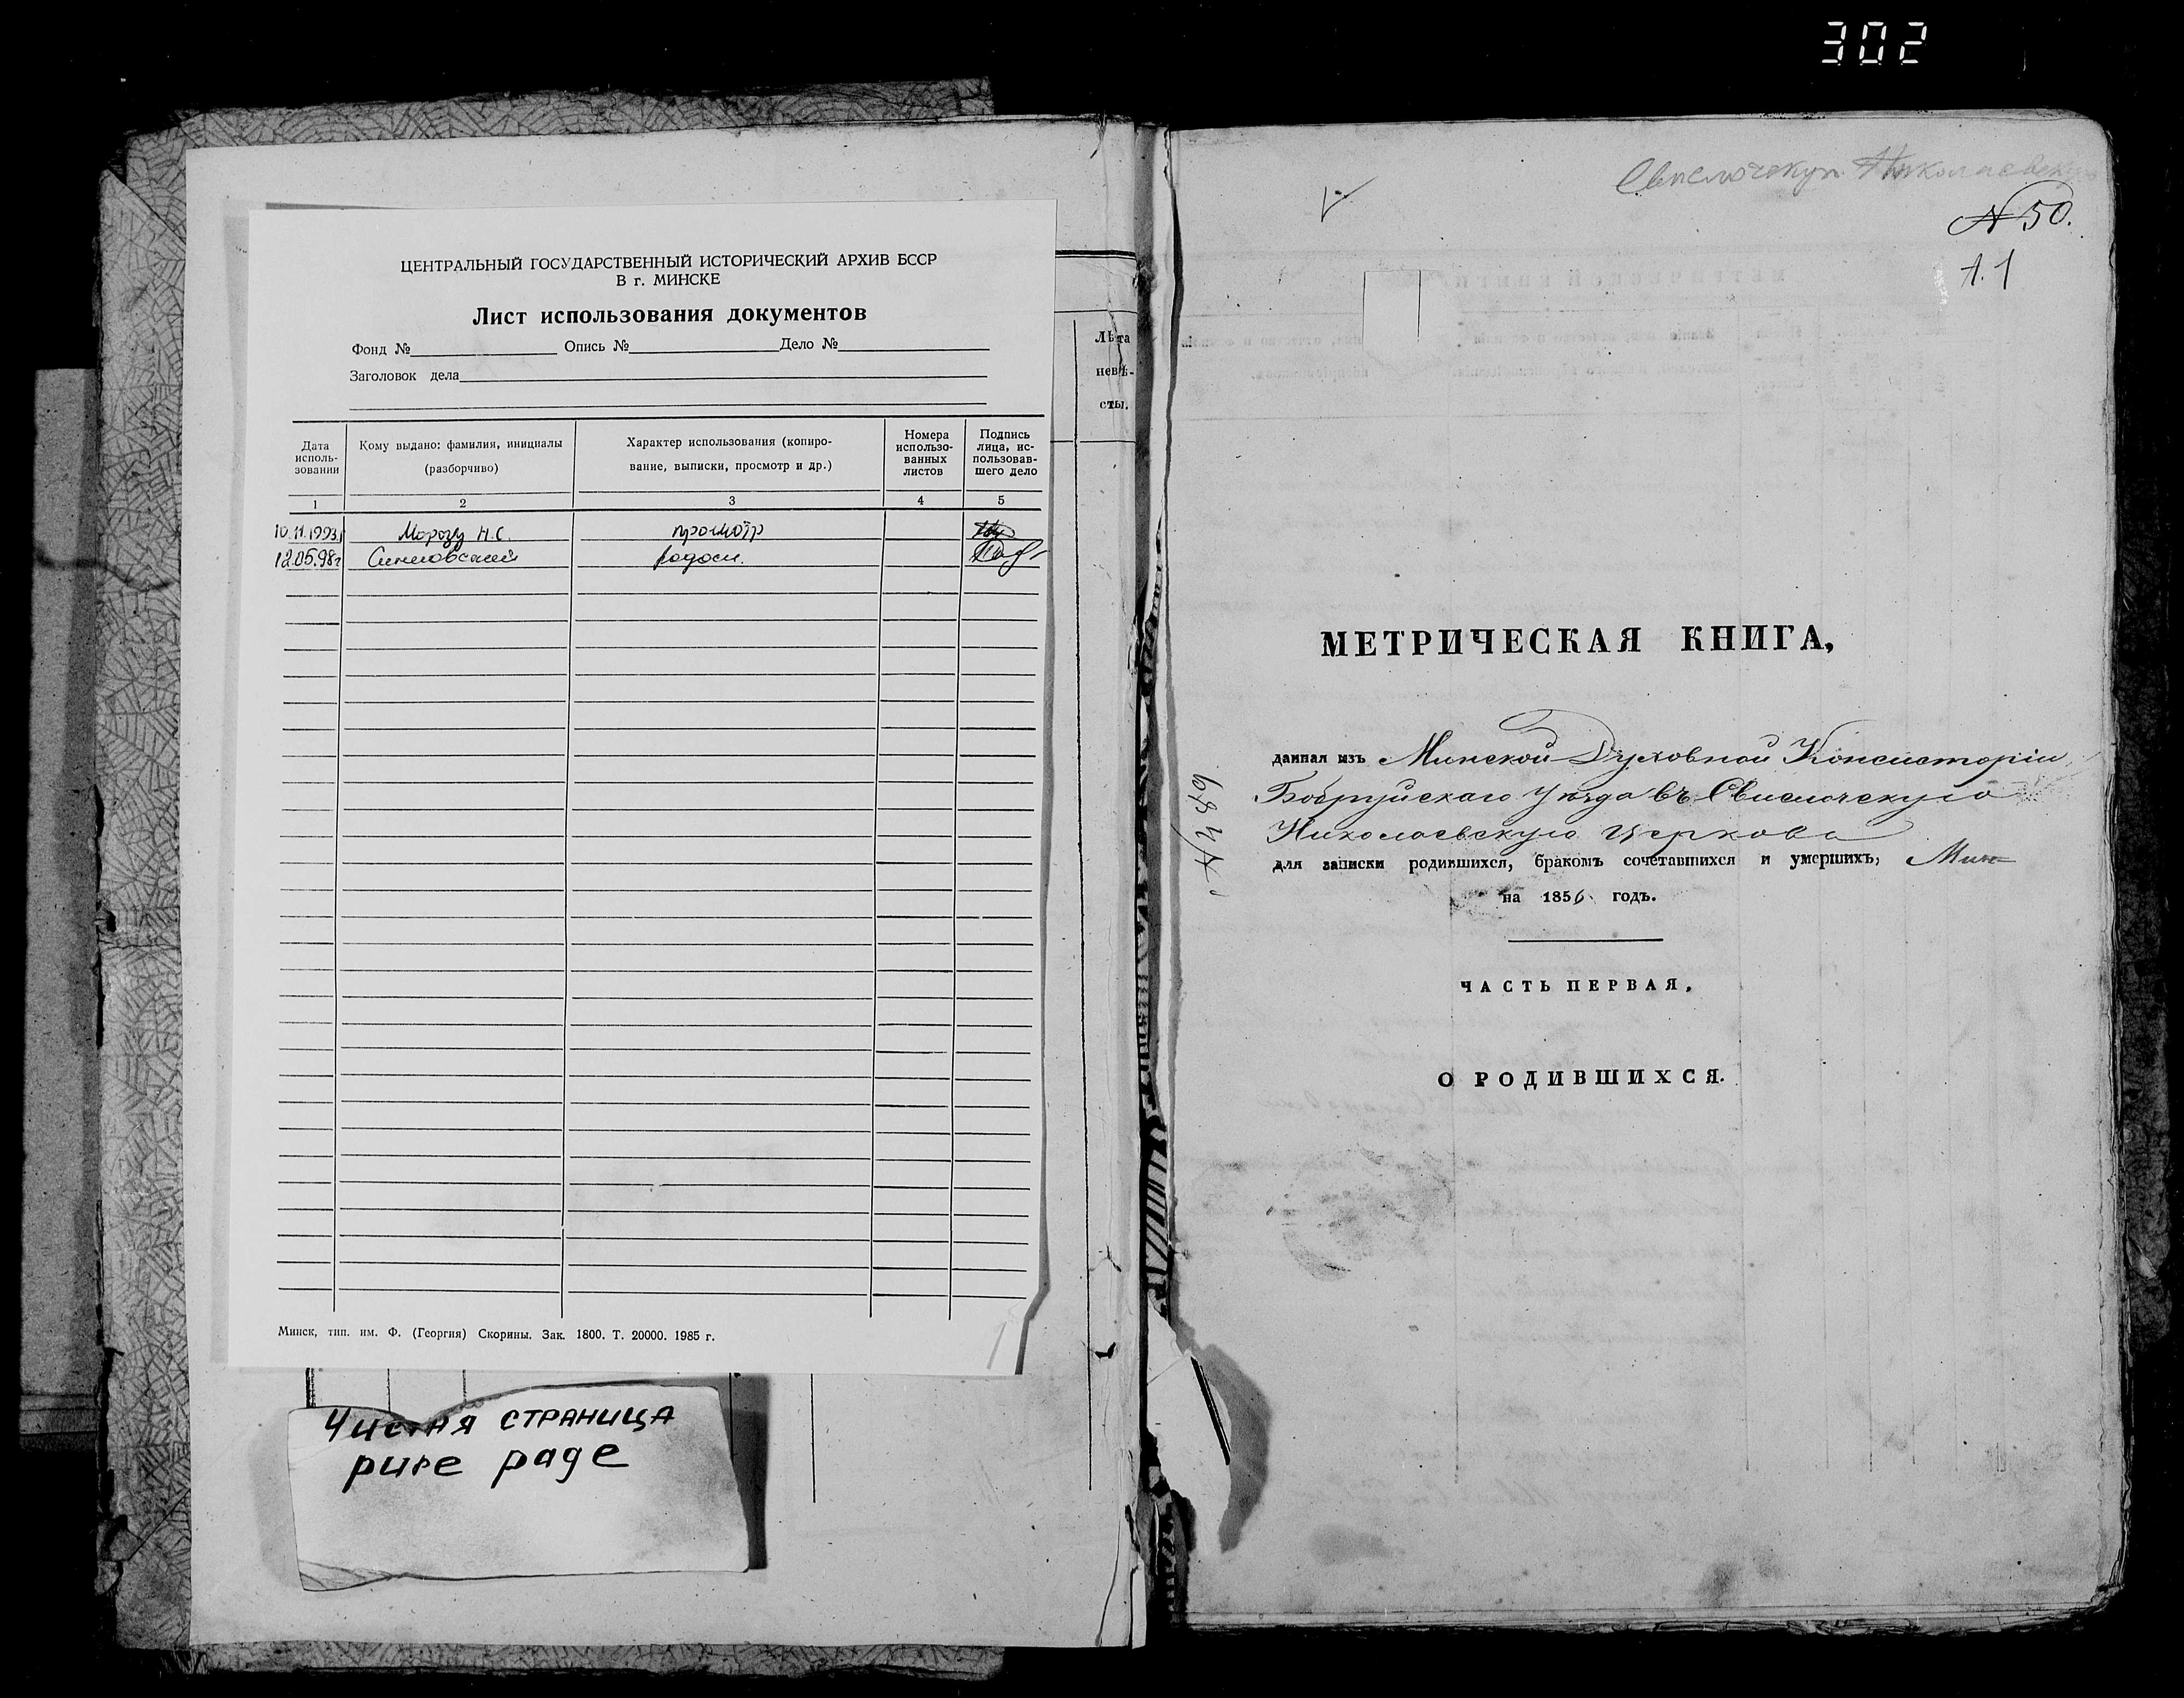 302
ЦЕНТРАЛЬНЫЙ ГОСУДАРСТВЕННЫЙ ИСТОРИЧЕСКИЙ АРХИВ БССР
В г. МИНСКЕ
Лист использования документов
Фонд № Опись № Дело №
Заголовок дела
Дата исполь-
зовании
Кому выдано: фамилия, инициалы
(разборчиво)
Характер использования (копиро-
вание, выписки, просмотр и др.)
Номера
использо-
ванных
листов
Подпись
лица, ис-
пользовав-
шего дело
1 2 3 4 5
10.11.1993г Морозу Н.С. просмотр
12.05.98г
Минск, тип. им. Ф. (Георгия) Скорины. Зак. 1800. Т. 20000. 1985 г.
Чистая СТРАНИЦА
pure page
Лѣта
невѣ-
сты.
Свислочскую Николаевскую
№ 50.
1.1
МЕТРИЧЕСКАЯ КНИГА,
данная изъ Минской Духовной Консисторіи
Бобруйскаго Уѣзда въ Свислочскую
Николаевскую Церковь
для записки родившихся, бракомъ сочетавшихся и умершихъ,
на 1856 годъ.
ЧАСТЬ ПЕРВАЯ,
О РОДИВШИХСЯ.
№ 489